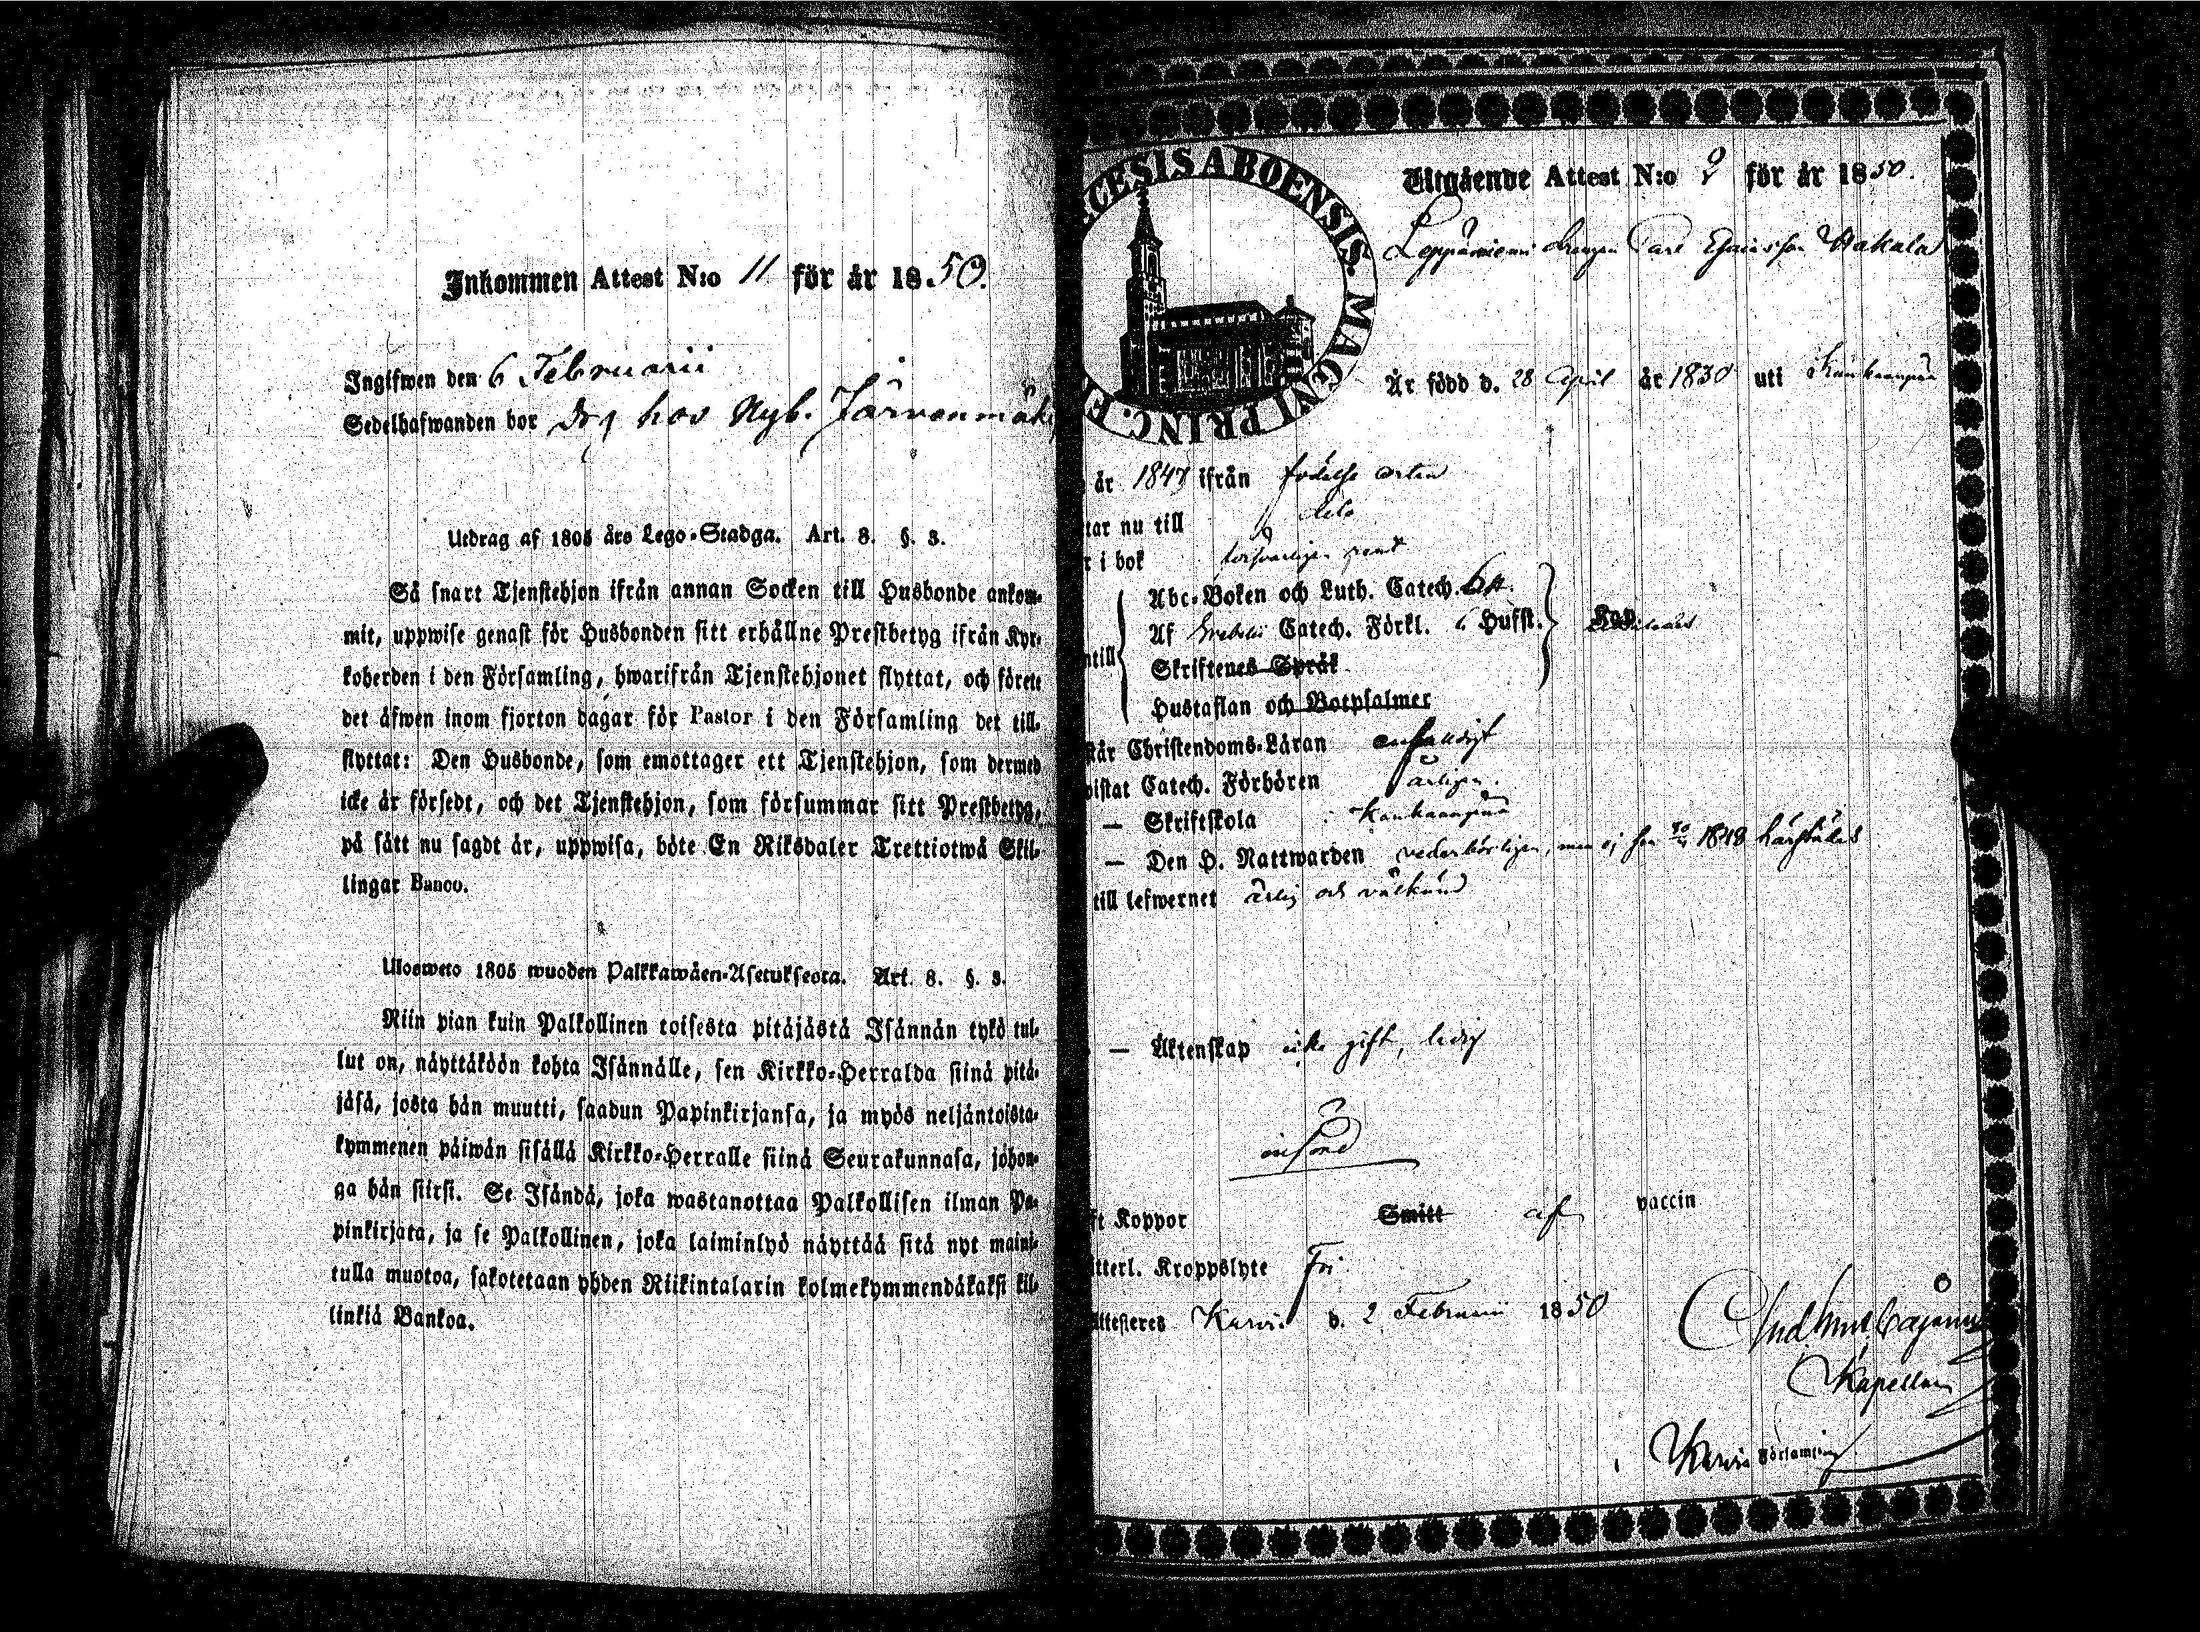 Inkommen Attest N:o 11 för år 1850.
Ingifwen den 6 Februarii
Sedelhafwanden bor Drg hos Nyb. Järvenmäki
Utdrag af 1805 års Lego-Stadga. Art. 8. §. 3.
Så snart Tjenstehjon ifrån annan Socken till Husbonde ankom-
mit, uppwise genast för Husbonden sitt erhållne Prestbetyg ifrån Kyr-
koherden i den Församling, hwarifrån Tjenstehjonet flyttat, och förete
det äfwen inom fjorton dagar för Pastor i den Församling det till-
flyttat: Den Husbonde, som emottager ett Tjenstehjon, som dermed
icke är försedt, och det Tjenstehjon, som försummar sitt Prestbetyg,
på sätt nu sagdt är, uppwisa, böte En Riksdaler Trettiotwå Skil-
lingar Banco.
Ulosweto 1805 wuoden Palkkawäen-Asetuksesta. Art. 8. §. 3.
Niin pian kuin Palkollinen toisesta pitäjästä Isännän tykö tul-
lut on, näyttäköön kohta Isännälle, sen Kirkko-Herralda siinä pitä-
jäsä, josta hän muutti, saadun Papinkirjansa, ja myös neljäntoista-
kymmenen päiwän sisällä Kirkko-Herralle siinä Seurakunnasa, johon-
ga hän siirsi. Se Isändä, joka wastanottaa Palkollisen ilman Pa-
pinkirjata, ja se Palkollinen, joka laiminlyö näyttää sitä nyt maini-
tulla muotoa, sakotetaan yhden Riikintalarin kolmekymmendäkaksi kil-
linkiä Bankoa.
CESIS ABOENSIS. MAGNI PRINC. F
Utgående Attest N:o 9 för år 1850.
Leppäniemi drengen Carl Wakala
Är född d. 28 April år 1830 uti Kankaanpää
år 1847 ifrån födelse orten
tar nu till dito
r i bok försvarligen rent
Abc-Boken och Luth. Catech.
Af Catech. Förkl. 6 Hufst.
ntill
Skriftenes Språk
Hustaflan och Botpsalmer
står Christendoms-Läran enfaldigt
wistat Catech. Förhören årligen.
— Skriftskola Kankaanpää
— Den H. Nattwarden vederbörligen, men ej här 1848
till lefwernet ärlig och välkänd
— Äktenskap icke gift, ledig
införd
ft Koppor Smitt af vaccin
tterl. Kroppslyte Fri
Attesteres Karvia d. 2 Februarii 1850
Cajanus
Kapellan
Karvia Församling